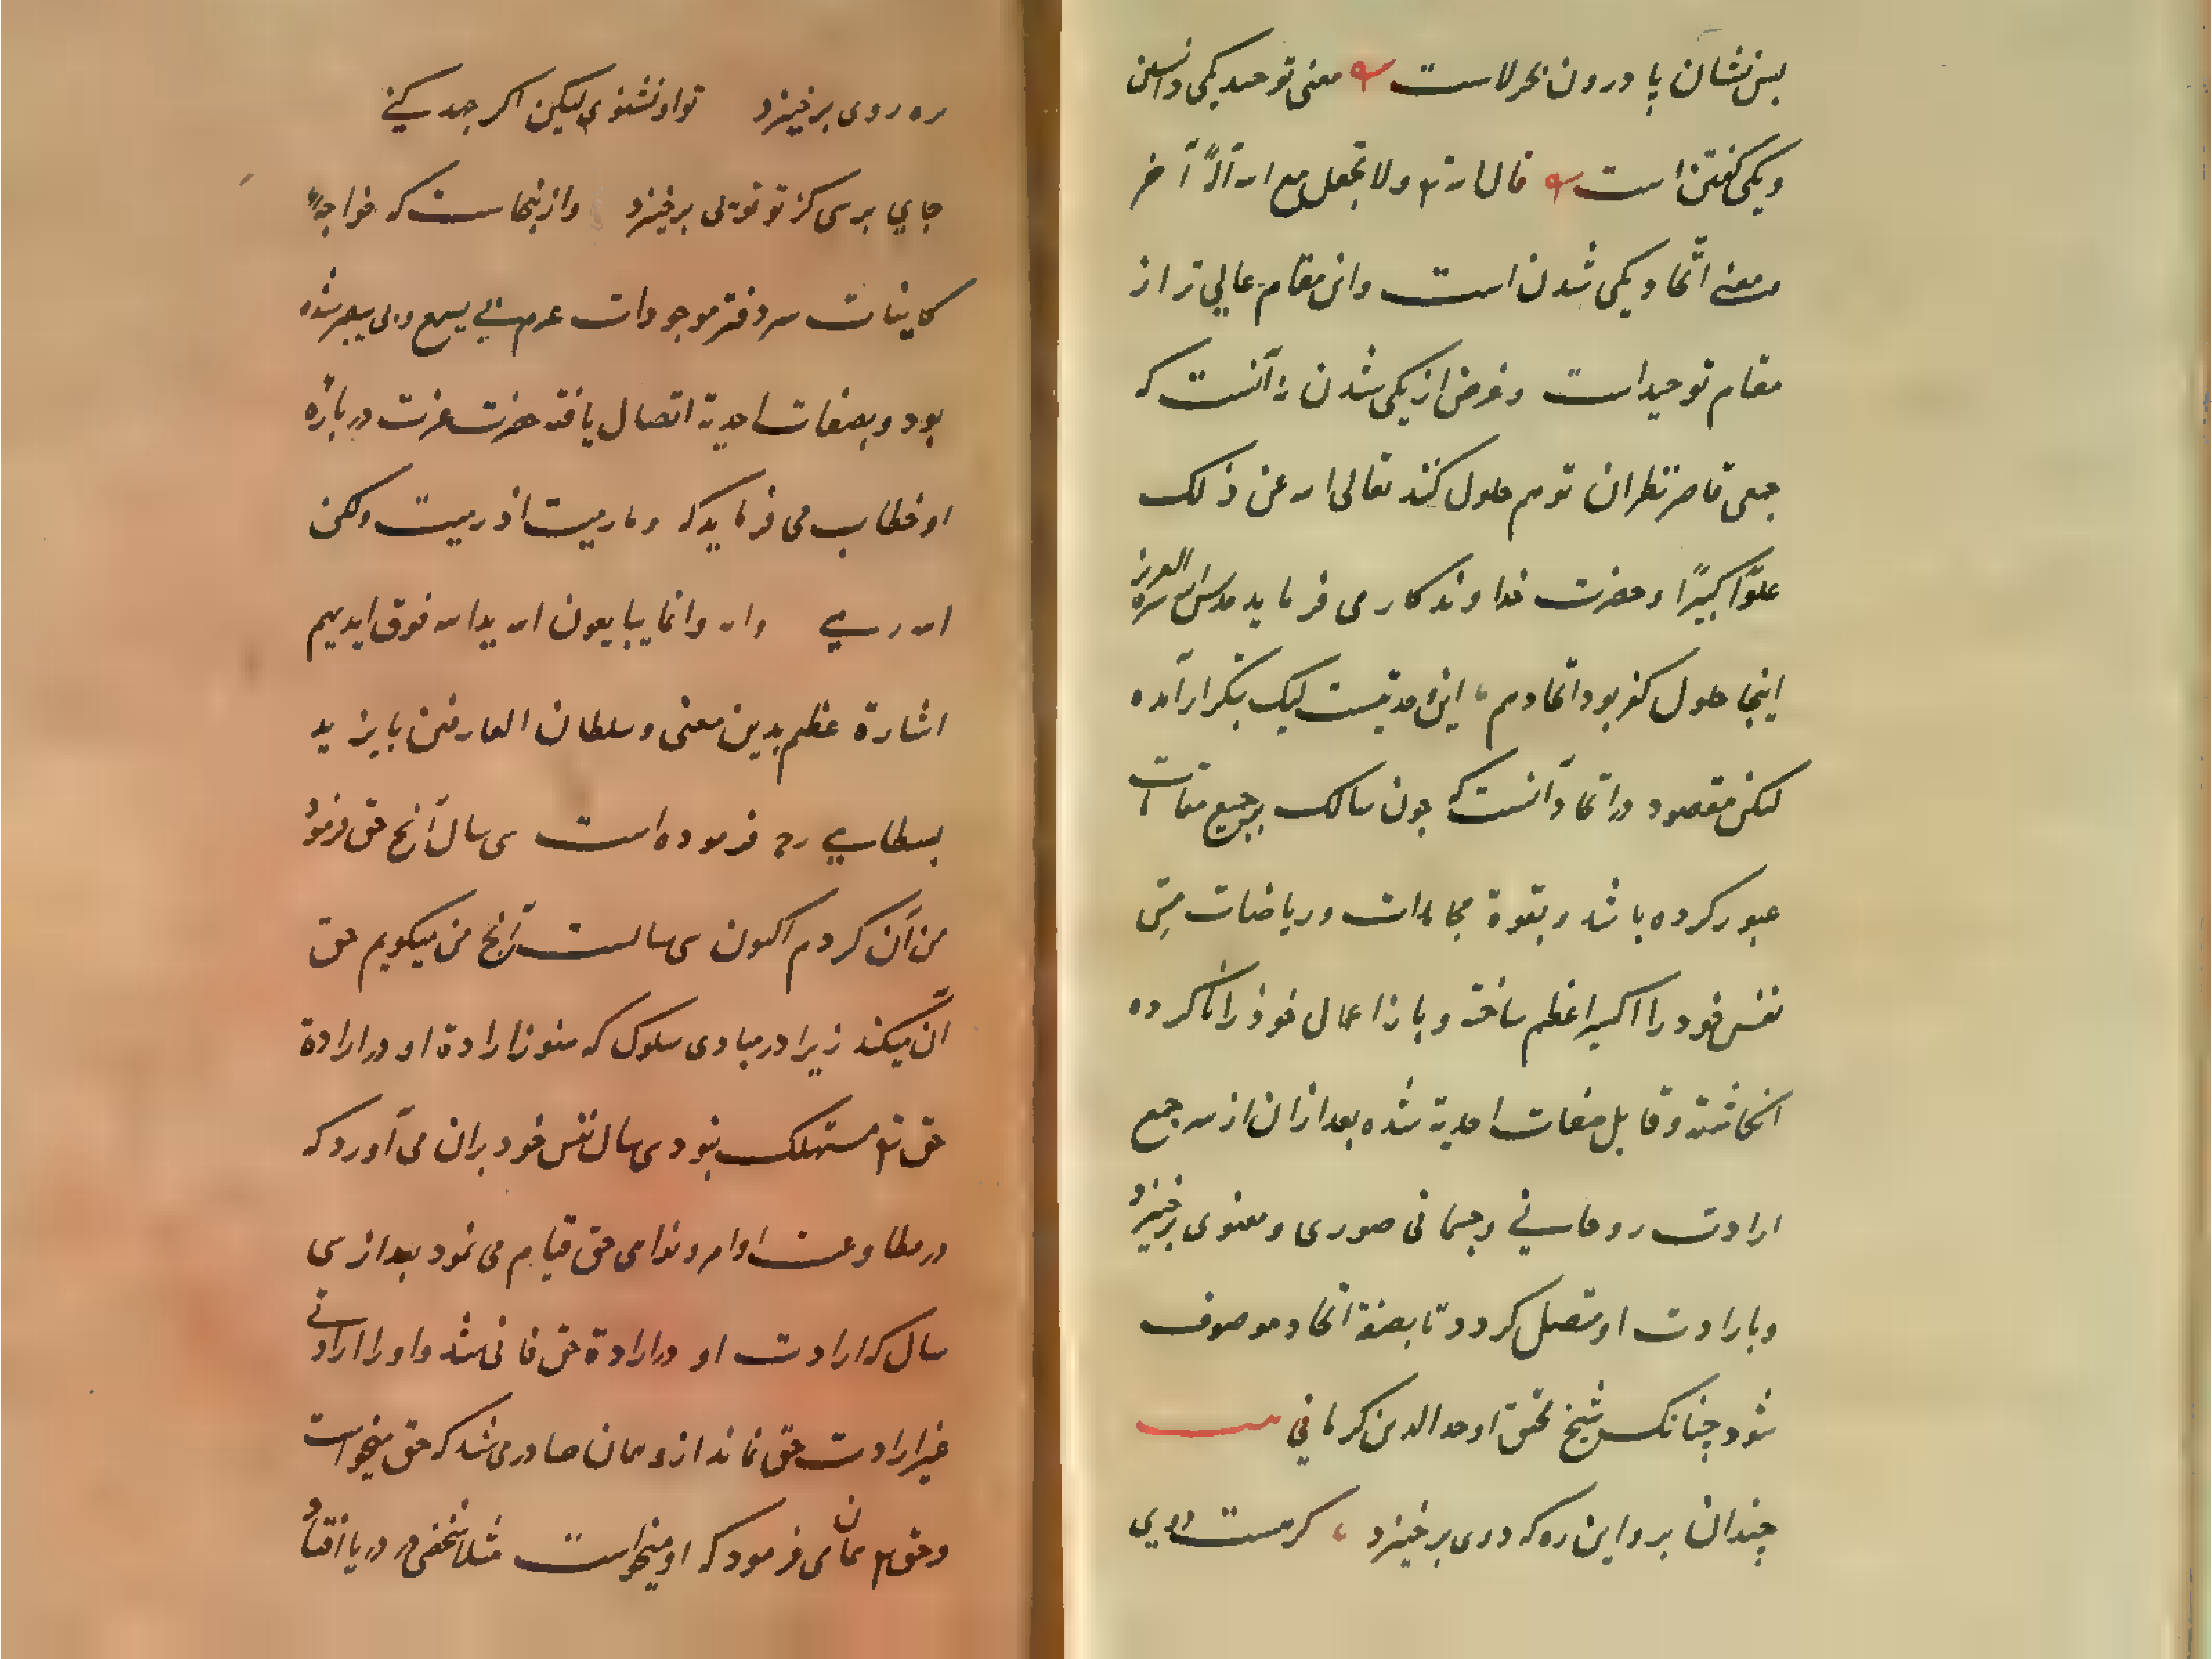 بس نشان پا درون بحر لاست معنی توحید یکی دانستن
و یکی گفتن است قال الله تع ولا تجعل مع الله آلهاً آخر
و معنی اتّحاد یکی شدن است واین مقام عالی تر از
مقام توحید است وغرض از یکی شدن نه آنست که
جمعی قاصر نظران توهم حلول کنند تعالی الله عن ذلک
علوًّا کبیرًا وحضرت خداوندکار می فرماید قدس الله سره العزیز
اینجا حلول کفر بود اتحاد هم این وحدتیست لیک بتکرار آمده
لیکن مقصود در اتحاد آنست که چون سالک بر جمیع مقامات
عبور کرده باشد وبقوة مجاهدات وریاضات مس
نفس خود را اکسیر اعظم ساخته وباز اعمال خود را ناکرده
انکاشته وقابل صفات احدیة شده بعد ازان از سر جمع
ارادت روحانی وجسمانی صوری ومعنوی برخیزد
وبارادت او متصل کردد تا بصفة اتحاد موصوف
شود چنانک شیخ محقق اوحد الدین کرمانی
چندان برو این ره که دوی برخیزد کر هست دویی
ره روی برخیزد تو او نشوی لیکن اکر جهد کنی
جایی برسی کز تو تویی برخیزد وازینجاست که خواجهٔ
کاینات سر دفتر موجودات عم بی یسمع وبی یبصر شده
بود وبصفات احدیة اتصال یافته حضرت عزت دربارهٔ
او خطاب می فرماید که وما رمیت اذ رمیت ولکن
الله رمی وانه وانما یبایعون الله ید الله فوق ایدیهم
اشارة عظیم بدین معنی وسلطان العارفین بایزید
بسطامی رح فرموده است سی سال آنچ حق فرمود
من آن کردم اکنون سی سالست آنچ من میکویم حق
آن میکند زیرا در مبادی سلوک که هنوز ارادة او در ارادة
حق تع مستهلک نبود سی سال نفس خود بران می آورد که
در مطاوعت اوامر ونواهی حق قیام می نمود بعد از سی
سال که ارادت او در ارادة حق فانی شد واو را ارادتی
غیر ارادت حق نماند ازو همان صادر می شد که حق میخواست
وحق تع همان می فرمود که او میخواست مثلا شخصی در دریا افتاد